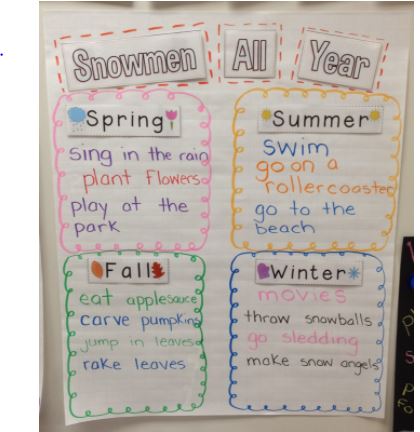 Snowmen All Year
Spring
sing in the rain
plant flowers
play at the
park
Summer
swim
go on a
rollercoaster
go to the
beach
Fall
eat applesauce
carve pumpkins
jump in leaves
rake leaves
Winter
movies
throw snowballs
go sledding
make snow angels